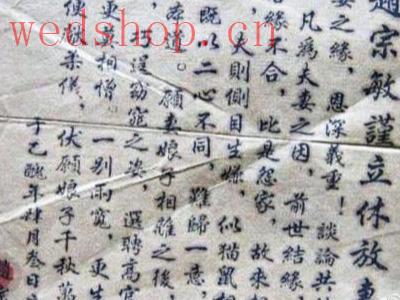 wedshop.cn
趙宗敏謹立休放妻
妻之緣，恩深義重！談論共
凡為夫妻之因，前世結緣
緣不合，此是怨家，故來
，夫則側目生嫌，似猫鼠
既以二心不同，難歸一意，
本道。願妻娘子相離之後，
巧逞窈窕之姿，選聘高官
更莫相憎。一別兩寬，更生
便獻柔儀。伏願娘子千秋萬
于乙醜年肆月叁日